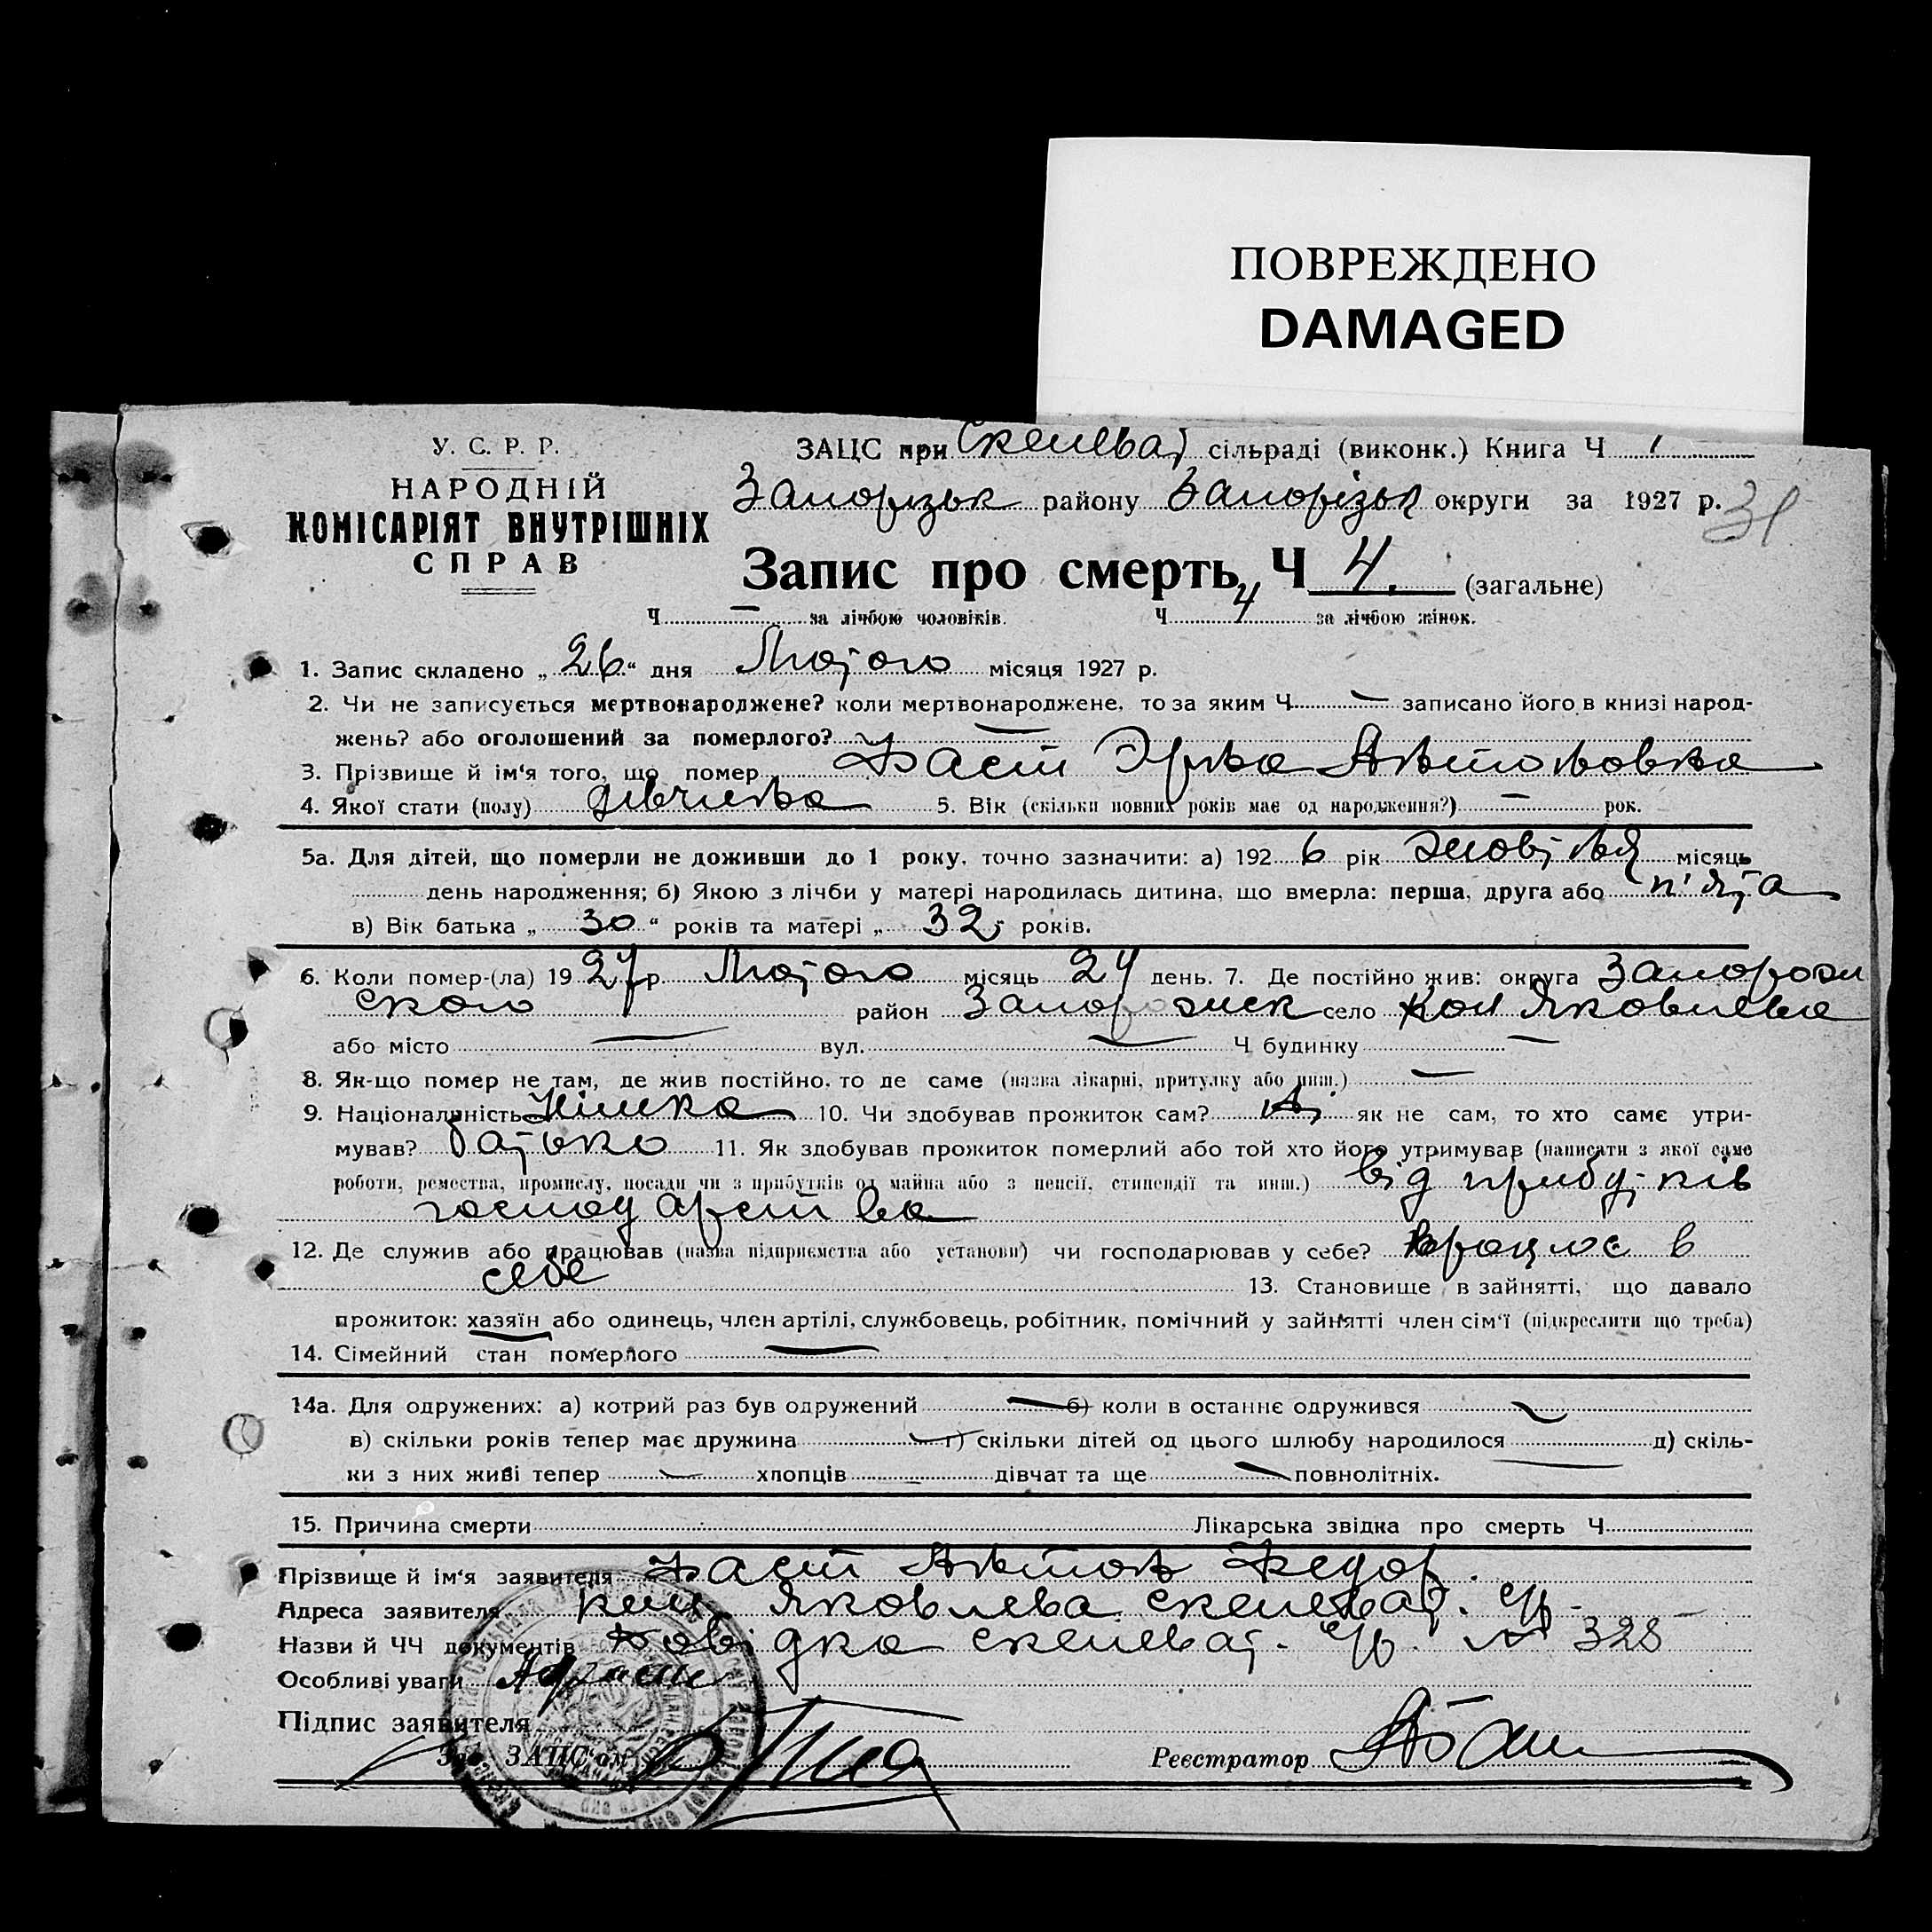 ПОВРЕЖДЕНО
DAMAGED
У. С. Р. Р.
НАРОДНІЙ
КОМІСАРІЯТ ВНУТРІШНІХ
СПРАВ
ЗАЦС при Скелеват сільраді (виконк.) Книга Ч 1
Запорізьк району Запорізьк округи за 1927 р.
31
Запис про смерть, Ч 4. (загальне)
Ч — за лічбою чоловіків. Ч 4 за лічбою жінок.
1. Запис складено „ 26 “ дня Лютого місяця 1927 р.
2. Чи не записується мертвонароджене? коли мертвонароджене, то за яким Ч — записано його в книзі народ-
жень? або оголошений за померлого? —
3. Прізвище й ім'я того, що помер Фаст Ірна Антоновна
4. Якої стати (полу) дівчинка 5. Вік (скільки повних років має од народження?) — рок.
5а. Для дітей, що померли не доживши до 1 року, точно зазначити: а) 192 6 рік жовтня місяць
день народження; б) Якою з лічби у матері народилась дитина, що вмерла: перша, друга або п'ята
в) Вік батька „ 30 “ років та матері „ 32 “ років.
6. Коли помер-(ла) 19 27 р. Лютого місяць 24 день. 7. Де постійно жив: округа Запорож
ского район Запорожск село кол Яковлева
або місто — вул. — Ч будинку —
8. Як-що помер не там, де жив постійно, то де саме (назва лікарні, притулку або инш.) —
9. Національність Німка 10. Чи здобував прожиток сам? Ні як не сам, то хто саме утри-
мував? батько 11. Як здобував прожиток померлий або той хто його утримував (написати з якої саме
роботи, ремества, промислу, посади чи з прибутків од майна або з пенсії, стипендії та инш.) від прибутків
господарства
12. Де служив або працював (назва підприємства або установи) чи господарював у себе? працює в
себе 13. Становище в зайнятті, що давало
прожиток: хазяїн або одинець, член артілі, службовець, робітник, помічний у зайнятті член сім'ї (підкреслити що треба)
14. Сімейний стан померлого —
14а. Для одружених: а) котрий раз був одружений — б) коли в останнє одружився —
в) скільки років тепер має дружина — г) скільки дітей од цього шлюбу народилося — д) скіль-
ки з них живі тепер — хлопців — дівчат та ще — повнолітніх.
15. Причина смерти Лікарська звідка про смерть Ч
Прізвище й ім'я заявителя Фаст Антон Федор.
Адреса заявителя кол Яковлева Скелеват. с/р -
Назви й ЧЧ документів Довідка Скелеват. с/р. № 328
Особливі уваги
Підпис заявителя
Зав. ЗАПС'ом Реєстратор